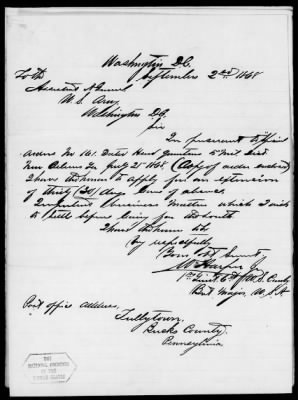 Washington D.C.
September 2nd 1868
To the
Assistant A. General
U.S. Army
Washington D.C.
Sir
In pursuance of Special
Orders No 161. Dated Head Quarters 5 Mil Dist
New Orleans La July 25th 1868. (Copy of orders enclosed)
I have the honor to apply for an extension
of Thirty (30) days leave of absence.
Important business matters which I wish
to settle before going far South
I have the honor to be
Very respectfully
Your Obt. Servt.
Wm
1st Lieut. 6th U.S. Cavalry
Bvt. Major, U.S.A.
Post office address,
Tullytown,
Bucks County,
Pennsylvania
THE
NATIONAL ARCHIVES
OF THE
UNITED STATES